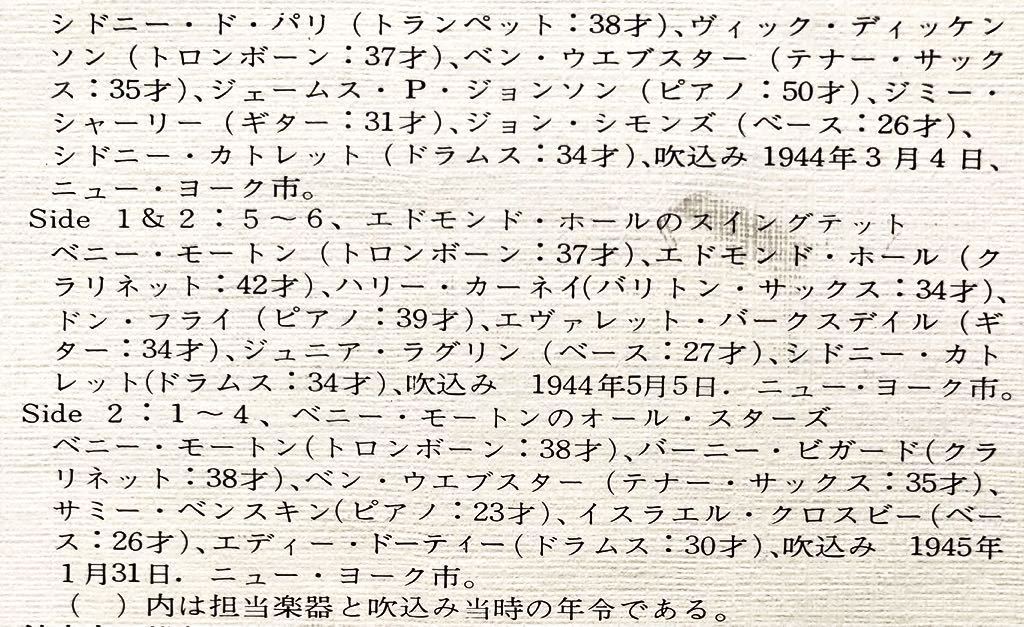 シドニー・ド・パリ（トランペット：38才）、ヴィック・ディッケン
ソン（トロンボーン：37才）、ベン・ウエブスター（テナー・サック
ス：35才）、ジェームス・P・ジョンソン（ピアノ：50才）、ジミー・
シャーリー（ギター：31才）、ジョン・シモンズ（ベース：26才）、
シドニー・カトレット（ドラムス：34才）、吹込み 1944年3月4日、
ニュー・ヨーク市。
Side 1＆2：5〜6、エドモンド・ホールのスイングテット
ベニー・モートン（トロンボーン：37才）、エドモンド・ホール（ク
ラリネット：42才）、ハリー・カーネイ(バリトン・サックス：34才)、
ドン・フライ（ピアノ：39才）、エヴァレット・バークスデイル（ギ
ター：34才）、ジュニア・ラグリン（ベース：27才）、シドニー・カト
レット(ドラムス：34才)、吹込み　1944年5月5日．ニュー・ヨーク市。
Side 2：1〜4、ベニー・モートンのオール・スターズ
ベニー・モートン(トロンボーン：38才)、バーニー・ビガード(クラ
リネット：38才)、ベン・ウエブスター（テナー・サックス：35才）、
サミー・ベンスキン(ピアノ：23才)、イスラエル・クロスビー(ベー
ス：26才)、エディー・ドーティー(ドラムス：30才)、吹込み　1945年
1月31日．ニュー・ヨーク市。
（　）内は担当楽器と吹込み当時の年令である。